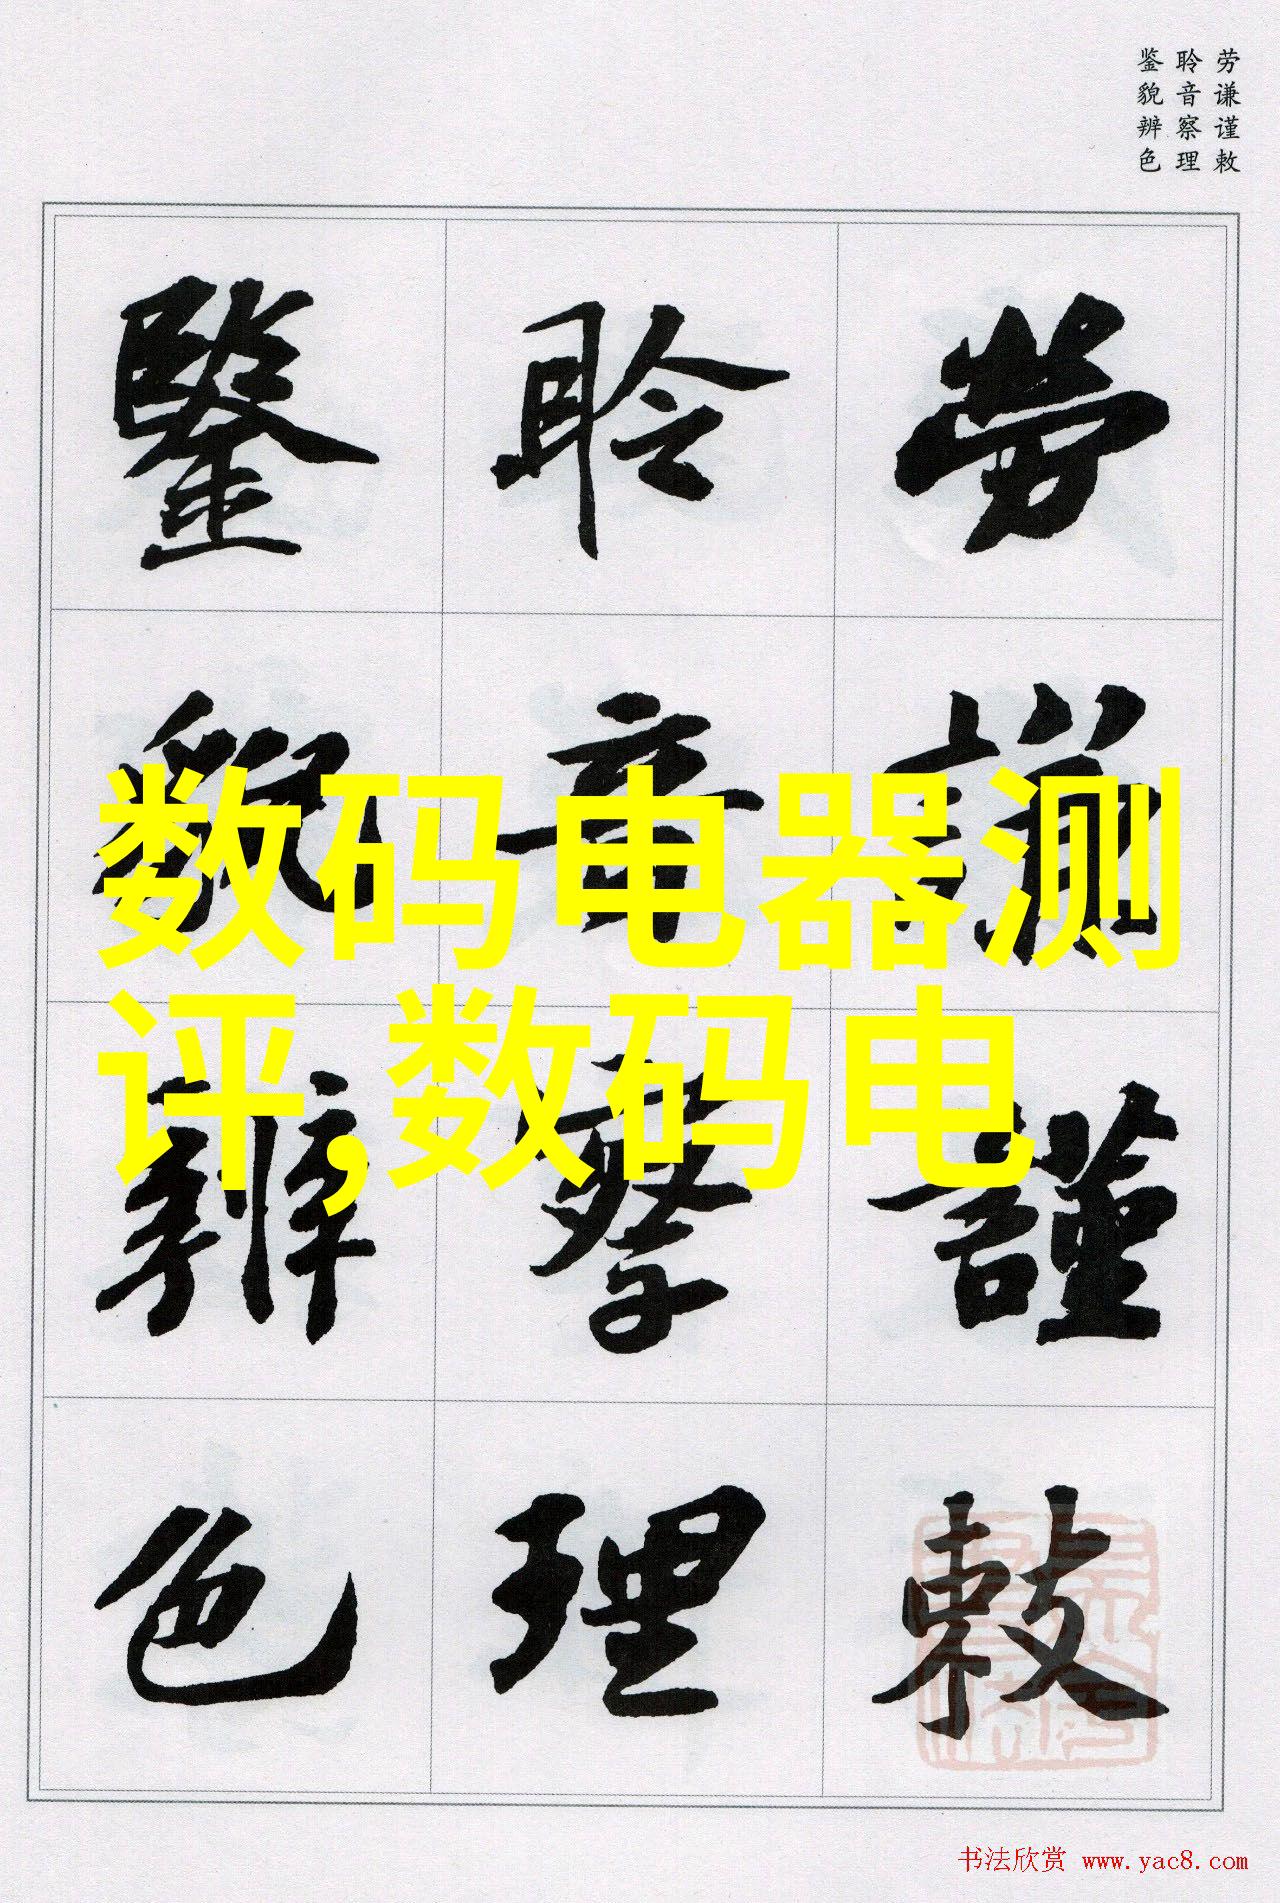 劳谦谨敕
聆音察理
鉴貌辨色
勞謙謹敕
聆音察理
鑒貌辨色
数码电器测
评,数码电
书法欣赏 www.yac8.com